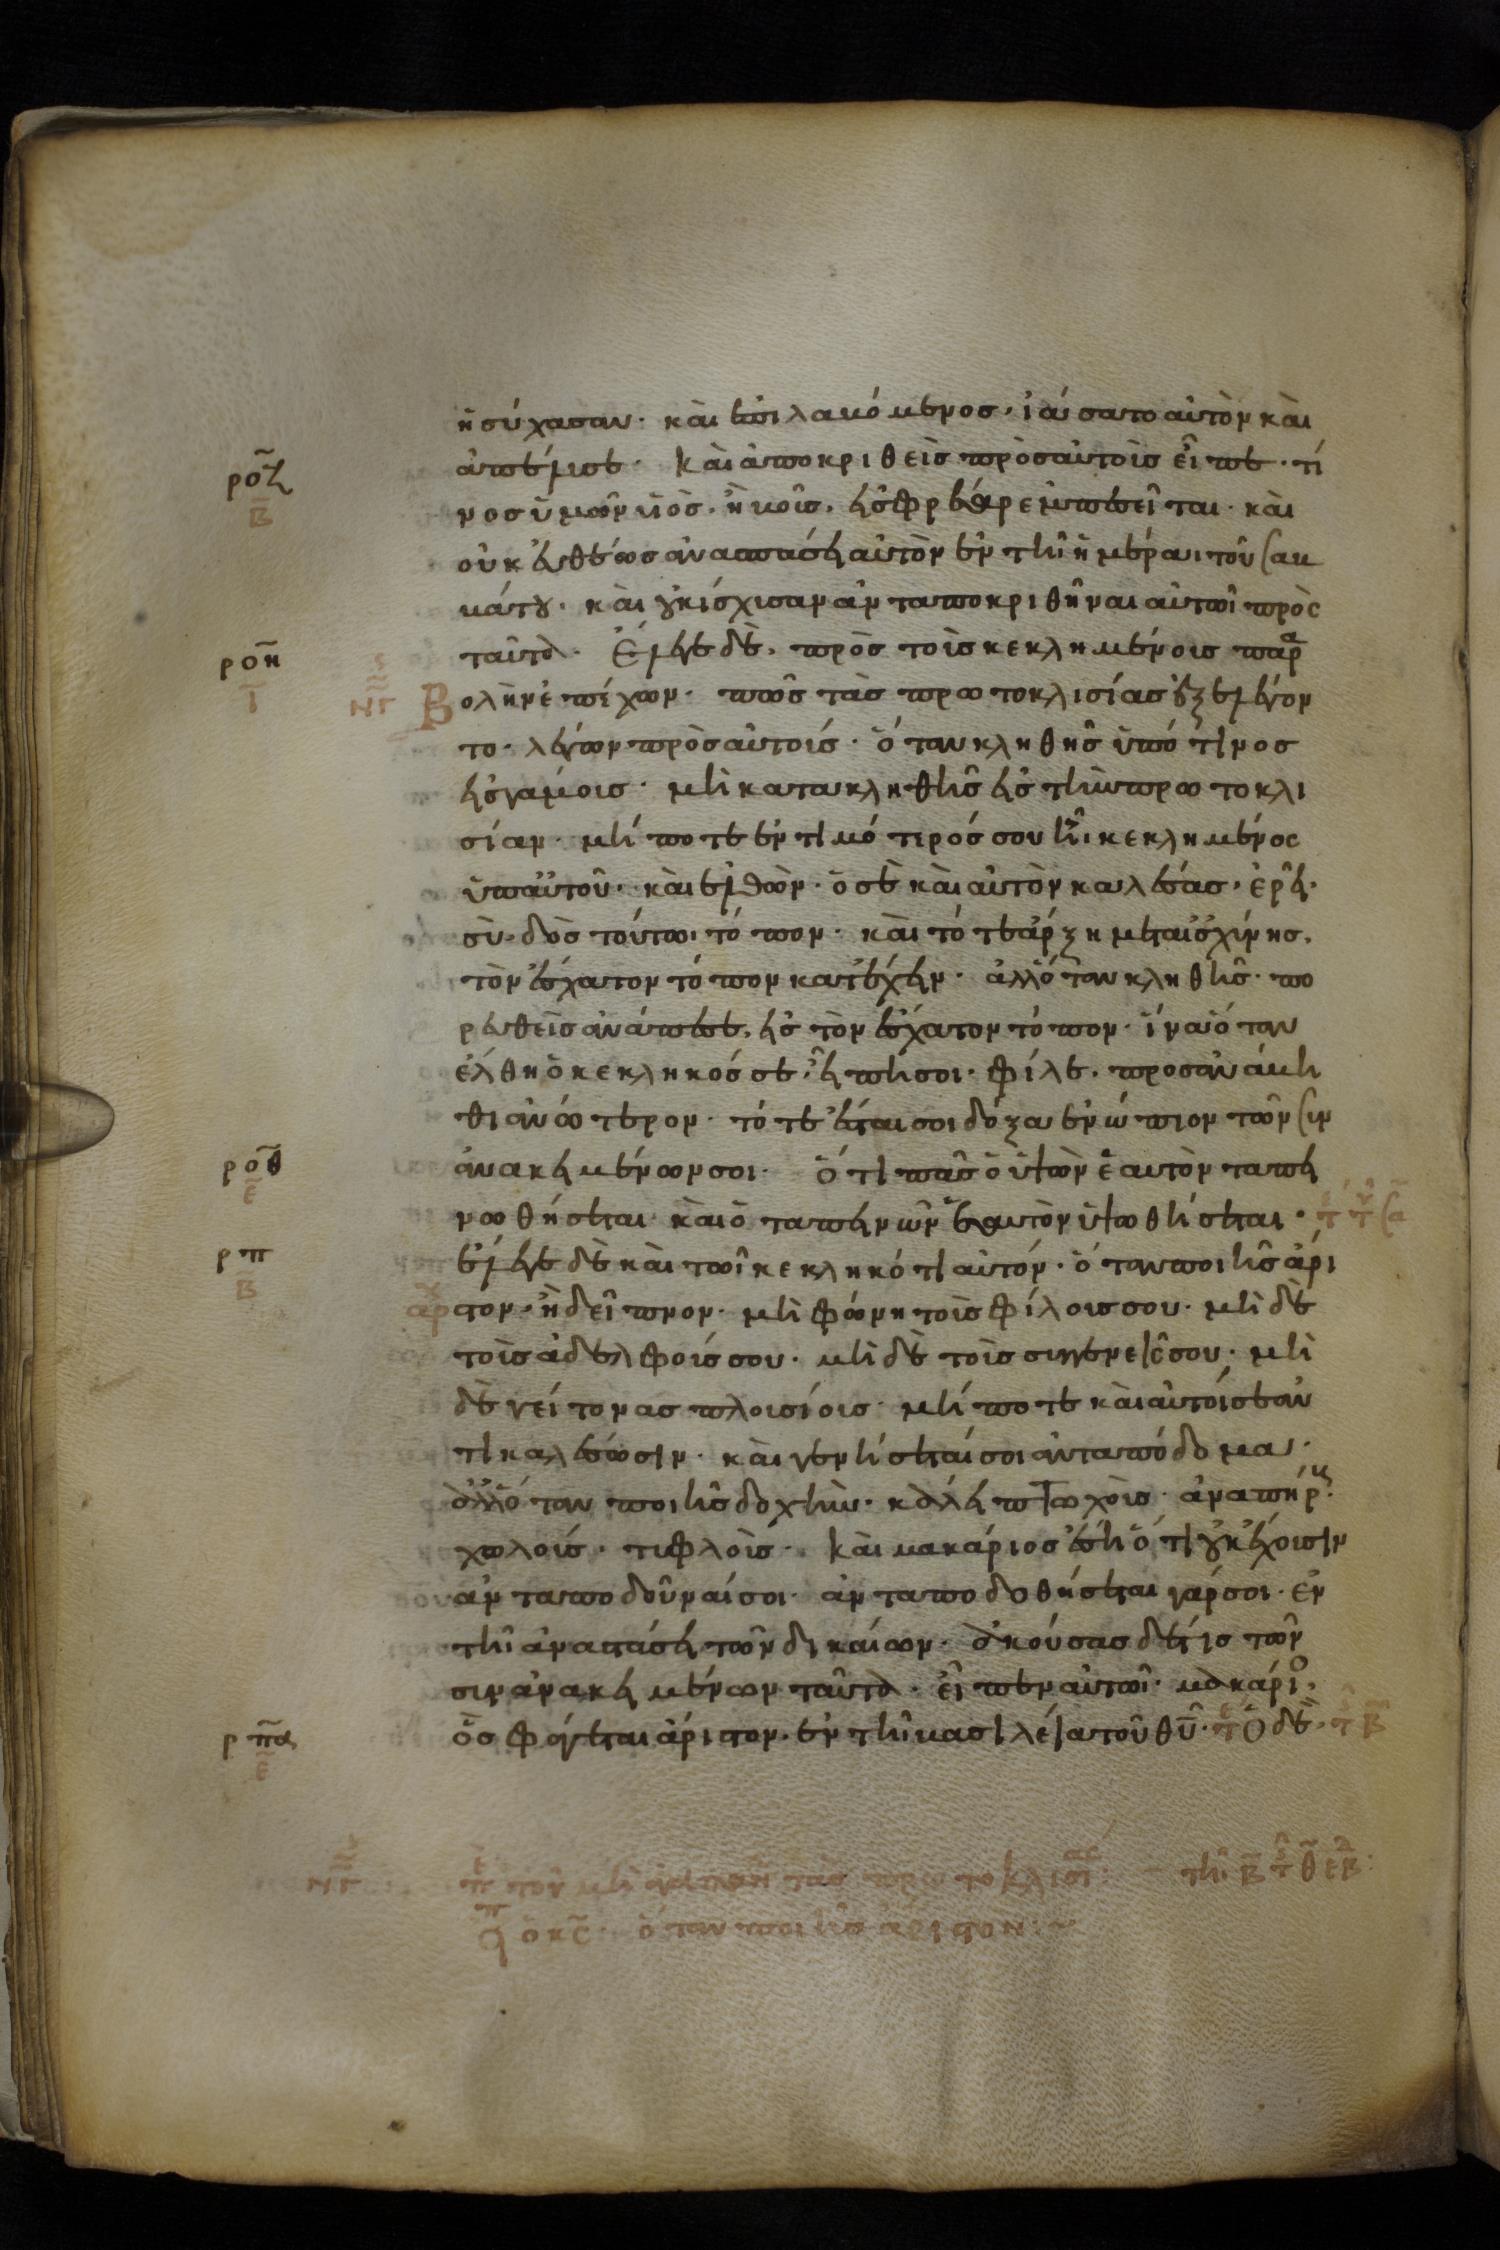 ἡσύχασαν. καὶ ἐπιλαβόμενος, ἰάσατο αὐτὸν καὶ
ροζ
ἀπέλυσε. Καὶ ἀποκριθεὶς πρὸς αὐτοὺς εἶπε. τί
β
νος ὑμῶν υἱὸς, ἢ βοῦς, εἰς φρέαρ ἐμπεσεῖται. καὶ
οὐκ εὐθέως ἀνασπάσει αὐτὸν ἐν τῆι ἡμέραι τοῦ σαβ
βάτου. καὶ οὐκ ἴσχυσαν ἀνταποκριθῆναι αὐτῶι πρὸς
ροη
ταῦτα. Ἔλεγε δὲ, πρὸς τοὺς κεκλημένους παρα
ι
νγ
βολὴν ἐπέχων. πῶς τὰς πρωτοκλισίας ἐξελέγον
το. λέγων πρὸς αὐτούς. ὅταν κληθῆς ὑπό τινος
εἰς γάμους. μὴ κατακληθῆς εἰς τὴν πρωτοκλι
σίαν. μήποτε ἐντιμότερός σου ἦι κεκλημένος
ὑπ αὐτοῦ. καὶ ἐλθὼν. ὁ σὲ καὶ αὐτὸν καλέσας. ἐρεῖ.
σὺ. δὸς τούτωι τόπον. καὶ τότε ἄρξη μετ αἰσχύνης.
τὸν ἔσχατον τόπον κατέχειν. ἀλλ ὅταν κληθῆς. πο
ρευθεὶς ἀνάπεσε, εἰς τὸν ἔσχατον τόπον. ἵνα ὅταν
ἔλθη ὁ κεκληκός σε, εἴπη σοι. φίλε. προσανάβη
θι ἀνώτερον. τότε ἔσται σοι δόξα ἐνώπιον τῶν συν
ροθ
ἀνακειμένων σοι. Ὅτι πᾶς ὁ ὑψῶν ἑαυτὸν ταπει
ε
νωθήσεται. καὶ ὁ ταπεινῶν ἑαυτὸν ὑψωθήσεται.
ρπ
ἔλεγε δὲ καὶ τῶι κεκληκότι αὐτόν. ὅταν ποιῆς ἄρι
β
αρχ
στον. ἢ δεῖπνον. μὴ φώνη τοὺς φίλους σου. μὴ δὲ
τοὺς ἀδελφούς σου. μὴ δὲ τοὺς συγγενεῖς σου. μὴ
δὲ γείτονας πλουσίους. μήποτε καὶ αὐτοί σε ἀν
τικαλέσωσιν. καὶ γενήσεταί σοι ἀνταπόδομα.
ἀλλ ὅταν ποιῆς δοχὴν. κάλει πτωχοὺς. ἀναπήρους.
χωλούς. τυφλούς. Καὶ μακάριος ἔση ὅτι οὐκ ἔχουσιν
ἀνταποδοῦναί σοι. ἀνταποδοθήσεται γάρ σοι. ἐν
τῆι ἀναστάσει τῶν δικαίων. ἀκούσας δέ τις τῶν
συνανακειμένων ταῦτα. εἶπεν αὐτῶι. μακάριος.
ρπα
ὃς φάγεται ἄριστον. ἐν τῆι βασιλείαι τοῦ θυ. Ὁ δὲ.
ε
νγ
τοῦ μὴ ἀγαπᾶν τὰς πρωτοκλισίας.
ὁ κς. ὅταν ποιῆς ἄριστον